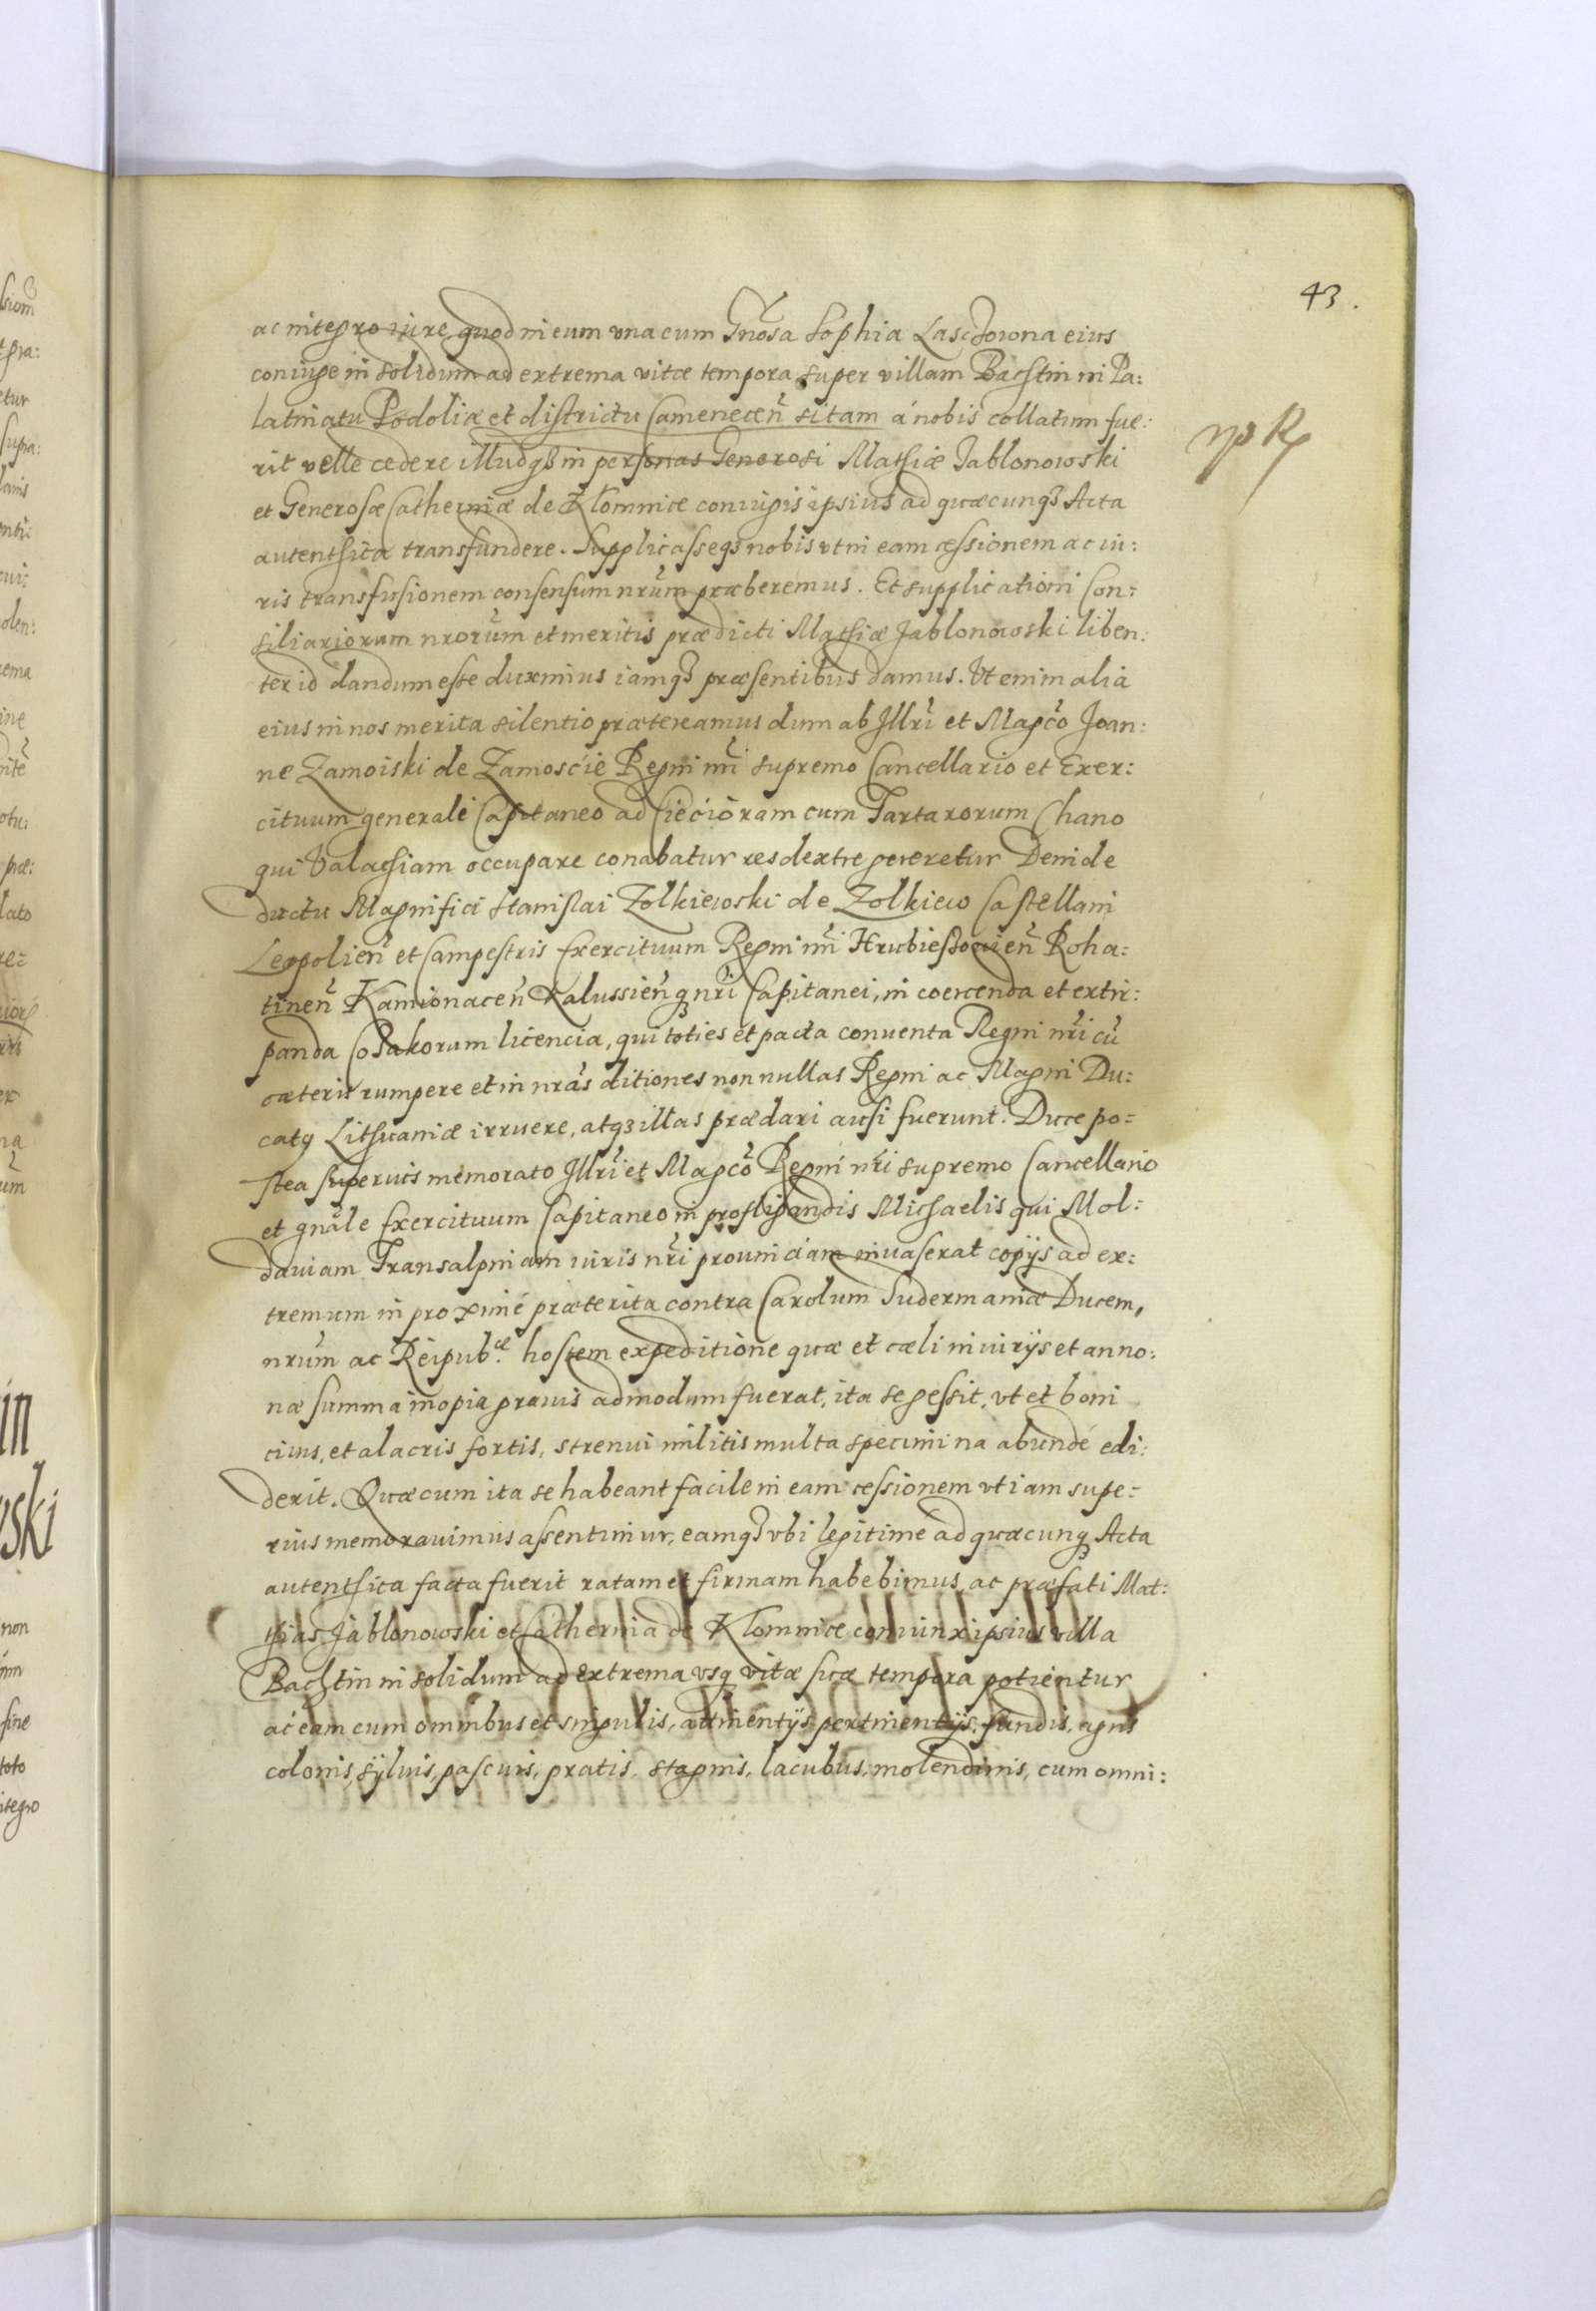 43.
ac integro iure, quod in eum vna cum Gnosa Sophia Laschowna eius
coniuge in solidum ad extrema vitæ tempora super villam Bachtin in Pa:
latinatu Podoliæ et districtu Camenecen sitam á nobis collatum fue:
rit velle cedere illudq3 in personas Generosi Mathiæ Jablonowski
et Generosæ Catherinæ de Kłomnice coniugis ipsius ad quæcunq3 Acta
autenthica transfundere. Supplicasseq3 nobis vt in eam cessionem ac iu:
ris transfusionem consensum nrum præberemus. Et supplicationi Con:
siliariorum nrorum et meritis prædicti Mathiæ Jablonowski liben:
ter id dandum esse duximus iamq3 præsentibus damus. Vt enim alia
eius in nos merita silentio prætereamus dum ab Jllri et Magco Joan:
ne Zamoiski de Zamoscie Regni nri supremo Cancellario et Exer:
cituum generali Capitaneo ad Ciecioram cum Tartarorum Chano
qui Valachiam occupare conabatur res dextre gereretur Deinde
ductu Magnifici Stanislai Zolkiewski de Zolkiew Castellani
Leopolien et Campestris Exercituum Regni nri Hrubiessowien Roha:
tinen Kamionacen Kalussienq nri Capitanei, in coercenda et extir:
panda Cosakorum licencia, qui toties et pacta conuenta Regni nri cu
cæteris rumpere et in nras ditiones nonnullas Regni ac Magni Du:
catq Lithuaniæ irruere, atq3 illas prædari ausi fuerunt. Duce po:
stea superius memorato Jllri et Magco Regni nri supremo Cancellario
et gnale Exercituum Capitaneo in profligandis Michaelis qui Mol:
dauiam Transalpinam iuris nri prouinciam inuaserat copijs ad ex:
tremum in proximé præterita contra Carolum Sudermaniæ Ducem,
nrum ac Reipub.cæ hostem expeditione quæ et cæli iniurijs et anno:
næ summa inopia grauis admodum fuerat, ita se gessit, vt et boni
ciuis, et alacris fortis, strenui militis multa specimina abundé edi:
derit. Quæ cum ita se habeant facile in eam cessionem vt iam supe:
rius memorauimus assentimur, eamq3 vbi legitimé ad quæcunq Acta
autenthica facta fuerit ratam et firmam habebimus, ac præfati Mat:
thias Jablonowski et Catherina de Kłomnice coniunx ipsius villa
Bachtin in solidum ad extrema vsq vitæ suæ tempora potientur
ac eam cum omnibus et singulis, attinentijs pertinentijs, fundis, agris
colonis, sÿluis, pascuis, pratis, stagnis, lacubus, molendinis, cum omni: